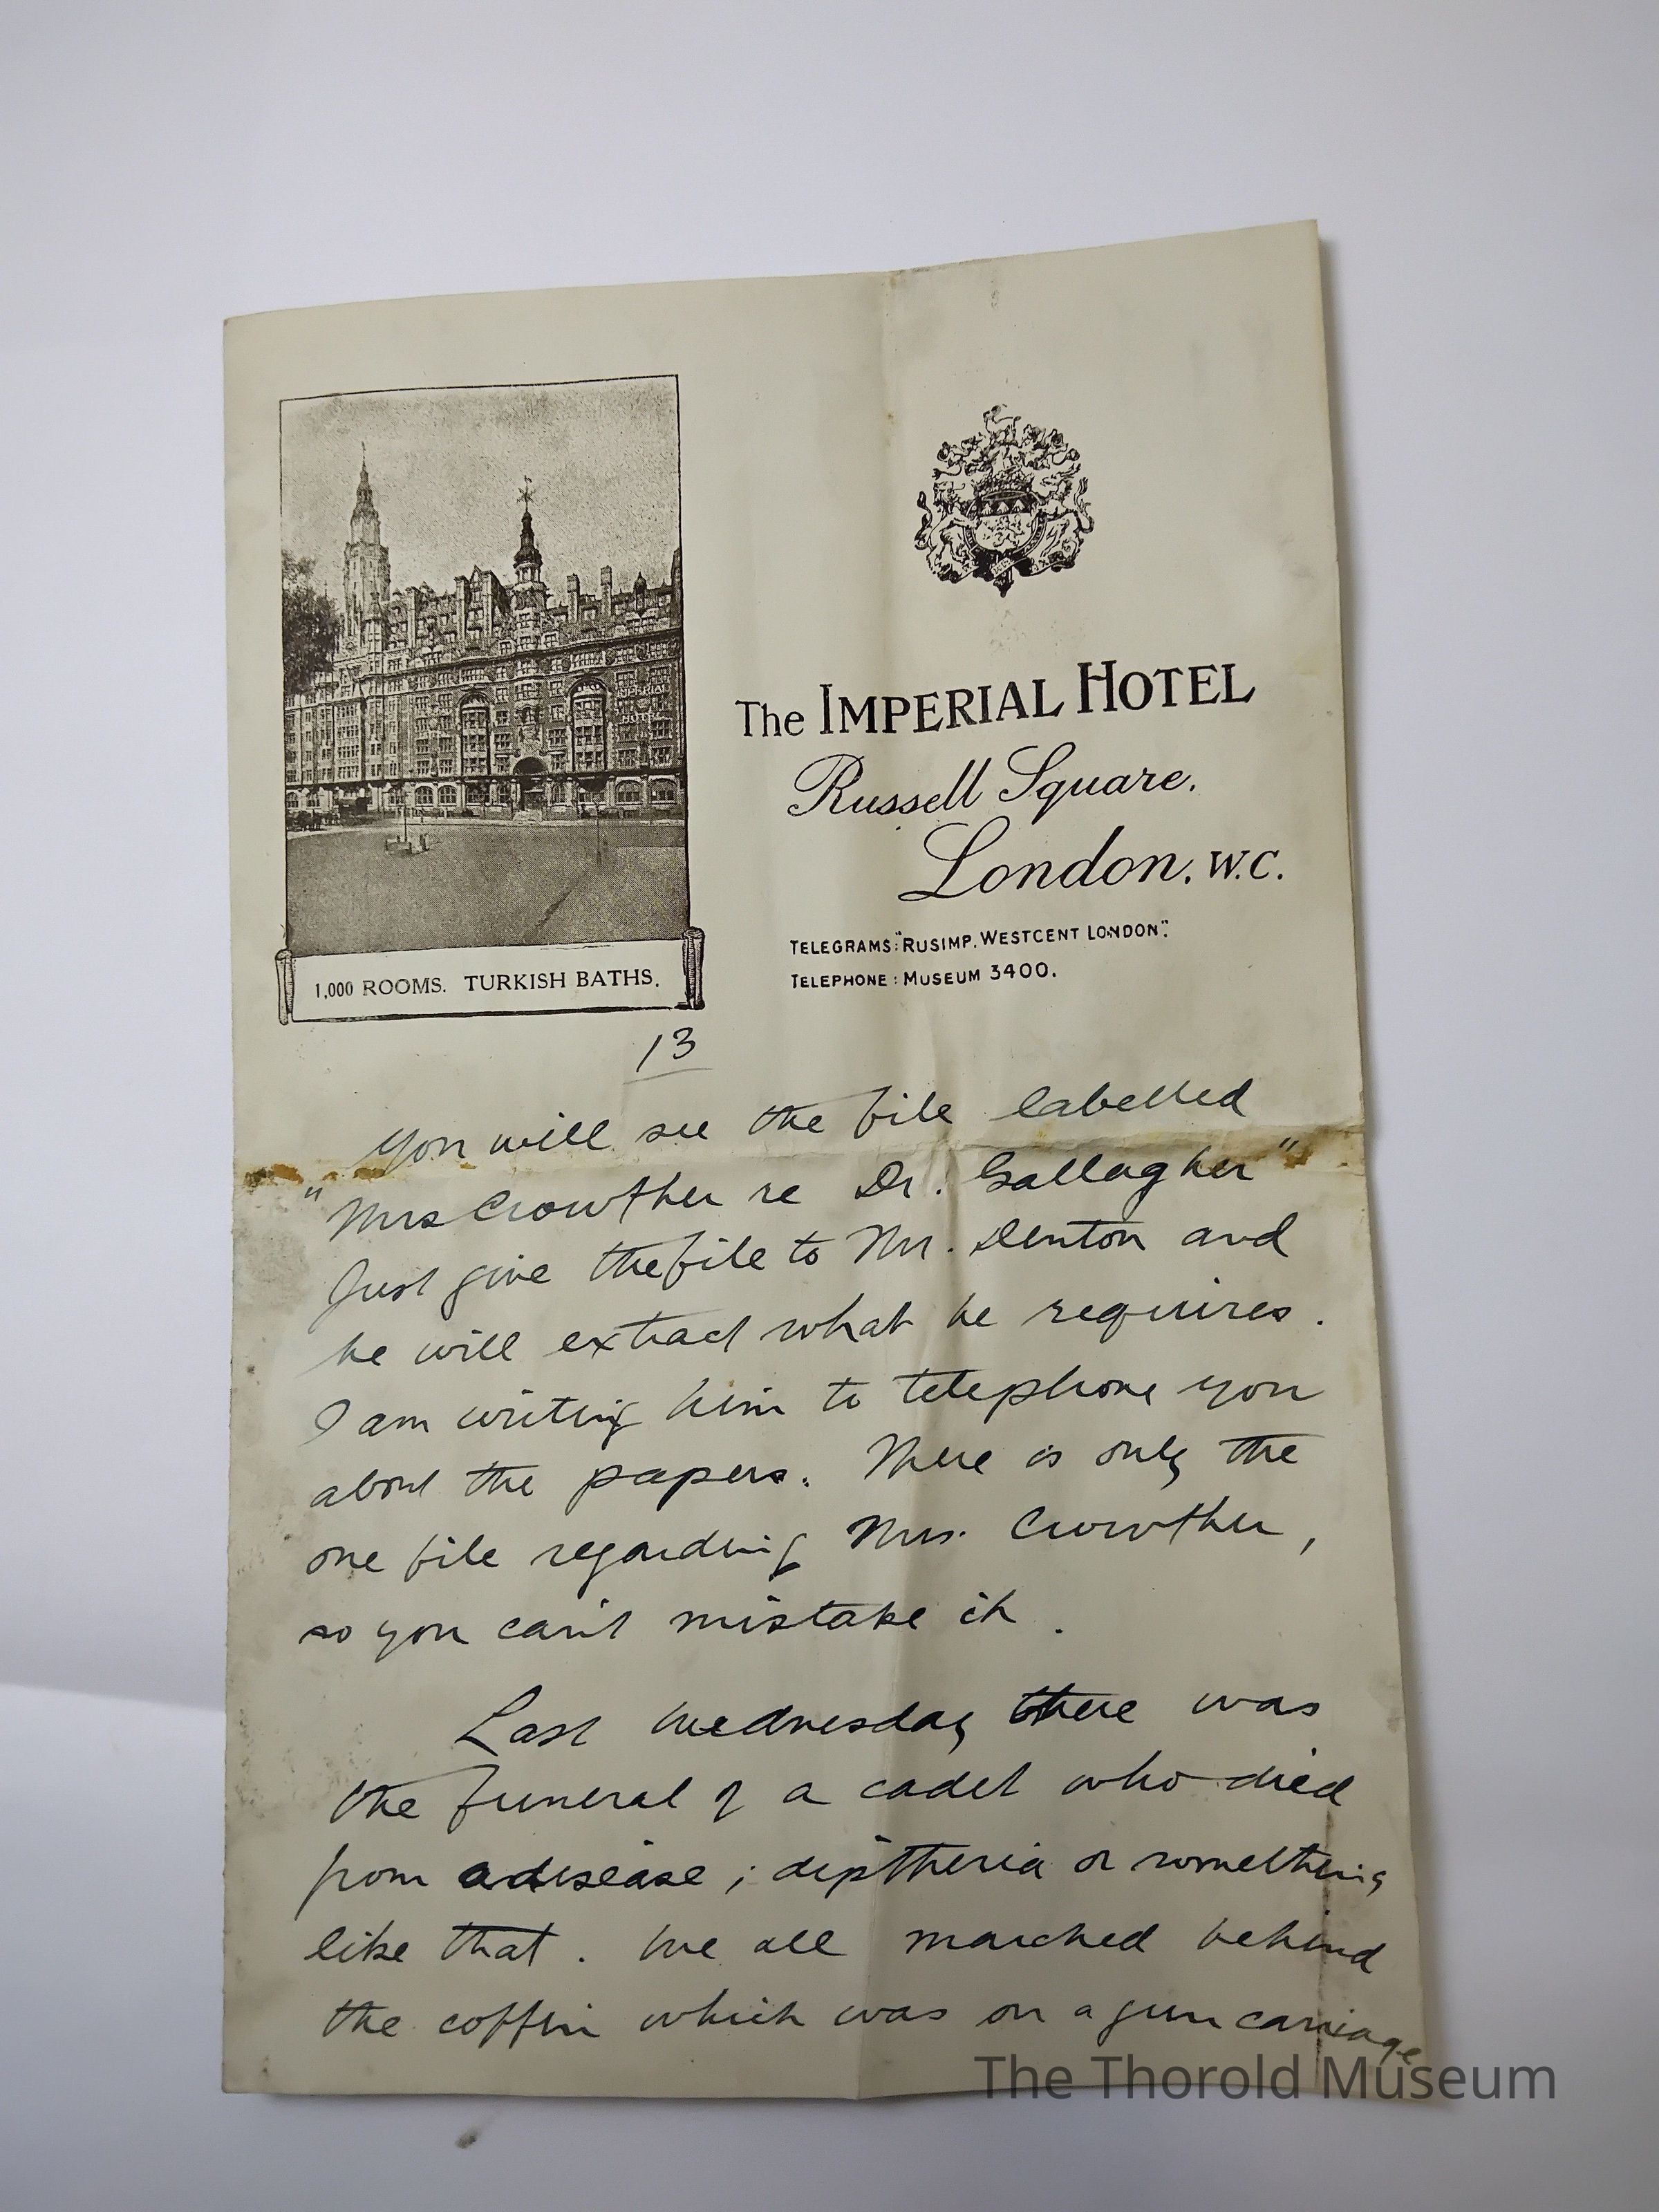 The IMPERIAL HOTEL
Russell Square.
London. W.C.
TELEGRAMS: "RUSIMP. WESTCENT LONDON".
TELEPHONE: MUSEUM 3400.
IMPERIAL HOTEL
1,000 ROOMS. TURKISH BATHS.
13
You will see the file labelled
"Mrs Crowther re Dr. Gallagher"
Just give the file to Mr. Denton and
he will extract what he requires.
I am writing him to telephone you
about the papers. There is only the
one file regarding Mrs. Crowther,
so you can't mistake it.
Last Wednesday there was
the funeral of a cadet who died
from a disease; diptheria or something
like that. We all marched behind
the coffin which was on a gun carriage
The Thorold Museum